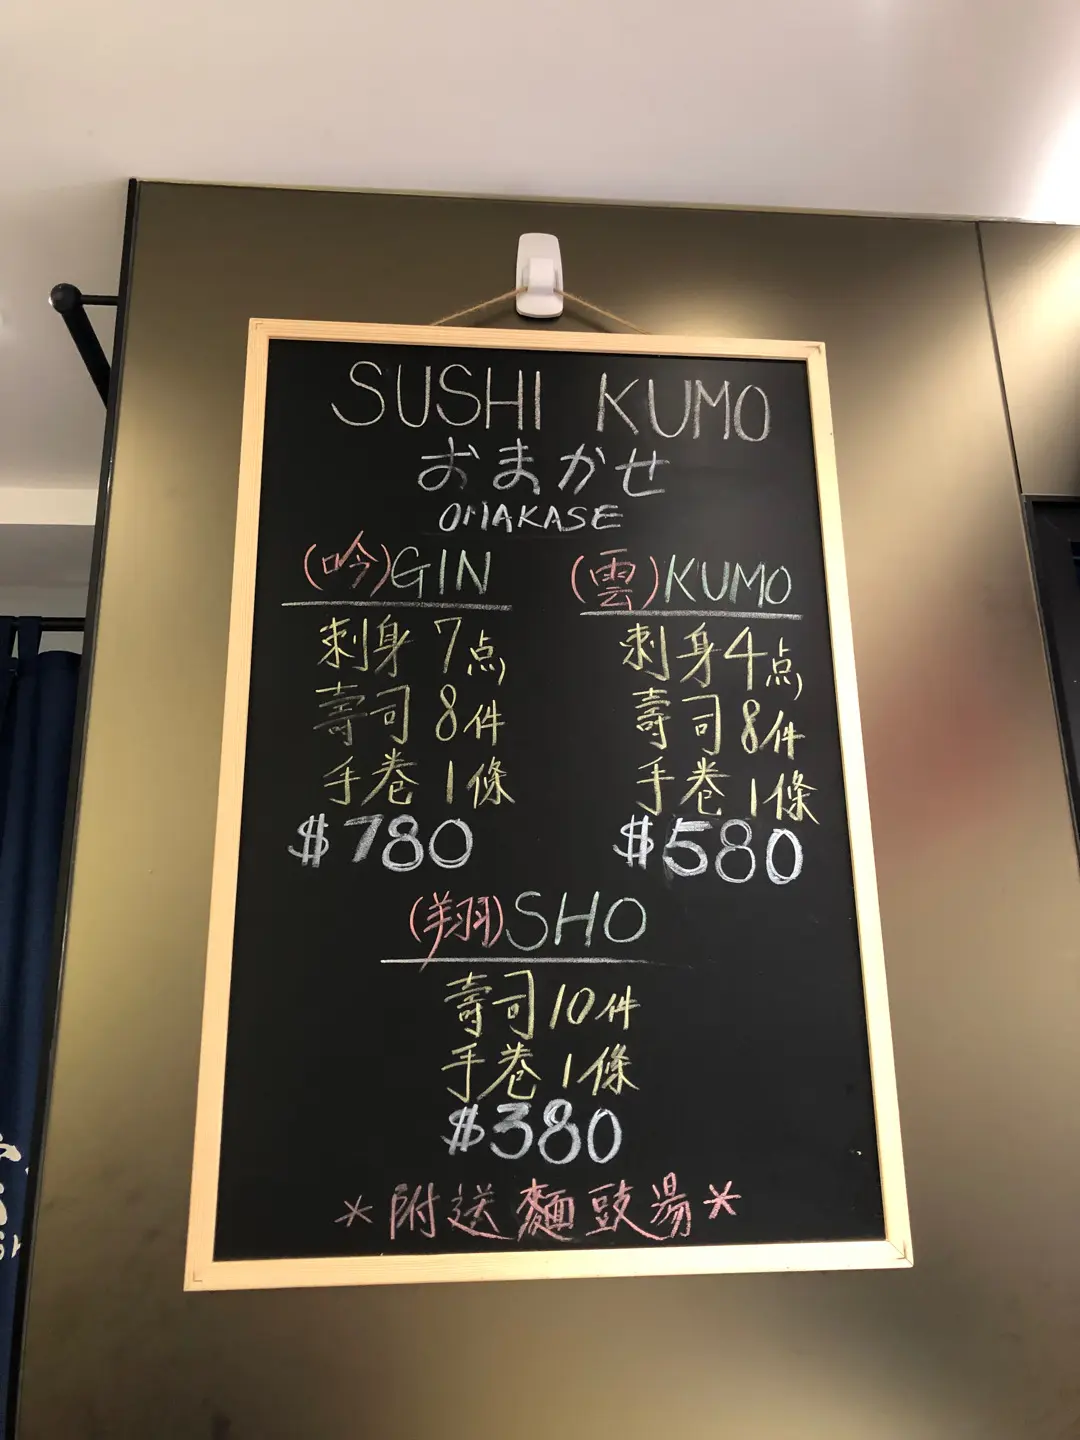 SUSHI KUMO
おまかせ
OMAKASE
(吟)GIN
刺身 7点,
壽司 8件
手卷 1條
$780
(雲)KUMO
刺身4点,
壽司 8件
手卷 1條
$580
(翔)SHO
壽司10件
手卷 1條
$380
*附送麵豉湯*